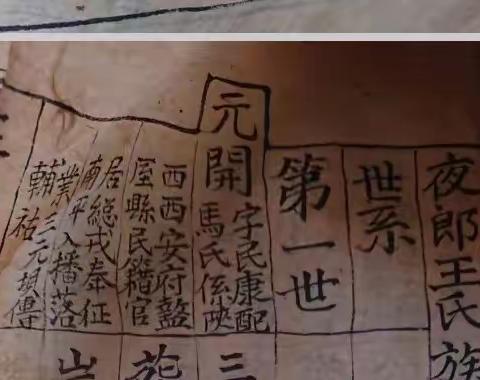 夜郎王氏族
世系
第一世
元開
字民康配
馬氏係陝
西西安府盩
厔縣民籍官
居總戎奉征
南平入播落
業三元垻傳
輔祜
三